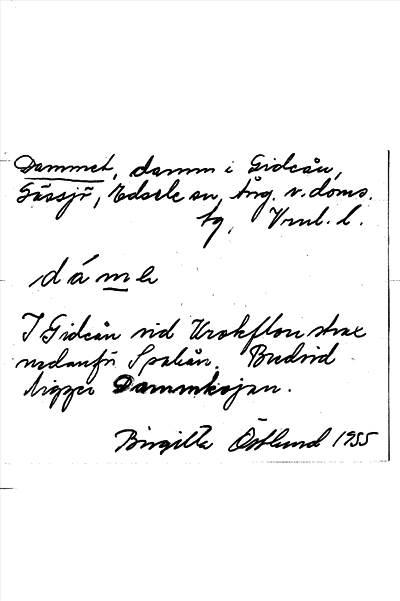 Dammet, damm i Gideån,
Gåssjö, Edsele sn, Ång. v. doms.
tg, Vrnl. l.
dámə
I Gideån vid Krokflon strax
nedanför Spakån. Bredvid
ligger Dammkojan.
Birgitta Östlund 1955